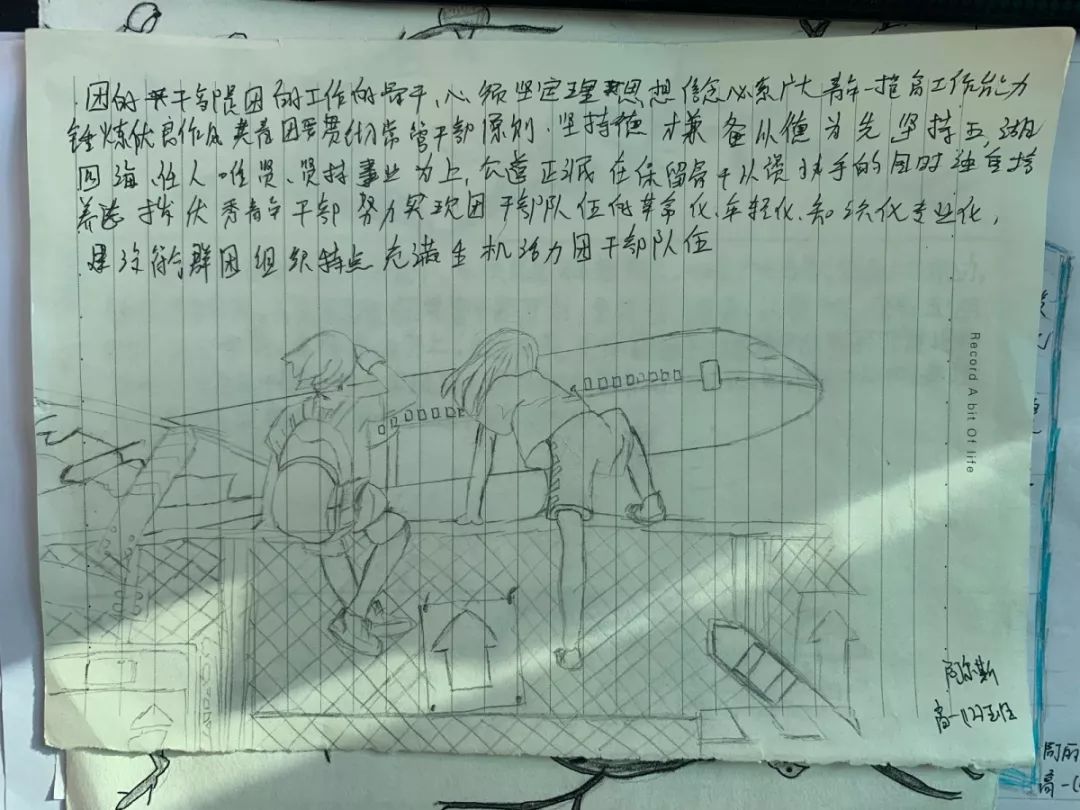 团的干部是团的工作的骨干、必须坚定理想信念心系广大青年提高工作能力
锤炼优良作风 共青团要贯彻党管干部原则、坚持德才兼备以德为先 坚持五湖
四海、任人唯贤、坚持事业为上、公道正派 在保留骨干 的同时 注重培
养选拔优秀青年干部 努力实现团干部队伍的革命化、年轻化、知识化专业化，
建设符合群团组织特点充满生机活力团干部队伍
Record A bit Of life
阿尔斯
高一(12)班
高一(